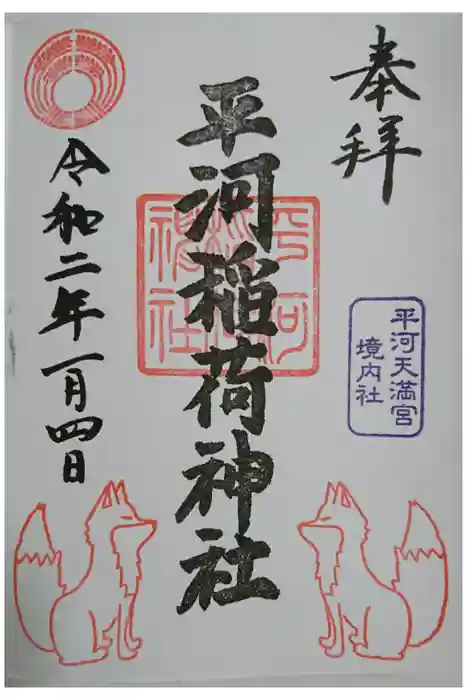 奉拝
平河天満宮
境内社
平河稲荷神社
平河稲荷神社
令和二年一月四日